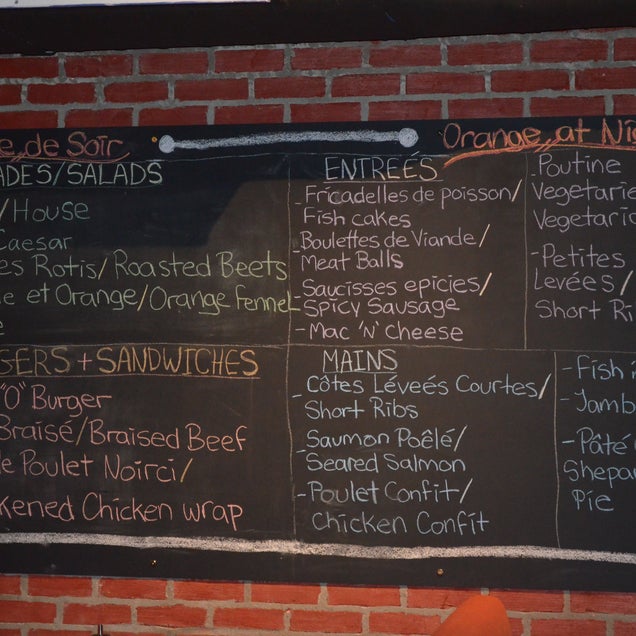 e de Soir
Orange at Ni
ADES/SALADS
/House
Caesar
es Rotis/Roasted Beets
le et Orange/Orange Fennel
e
ENTREÉS
- Fricadelles de poisson/
Fish cakes
- Boulettes de Viande/
Meat Balls
- Saucisses epicies/
Spicy Sausage
- Mac 'N' Cheese
- Poutine
Vegetarie
Vegetaria
- Petites
Levées/
Short Ri
GERS + SANDWICHES
"O" Burger
Braisé/Braised Beef
de Poulet Noirci/
kened Chicken wrap
MAINS
- Côtes Léveés Courtes/
Short Ribs
- Saumon Poêlé/
Seared Salmon
- Poulet Confit/
Chicken Confit
- Fish
- Jamb
- Pâté
Shepar
Pie